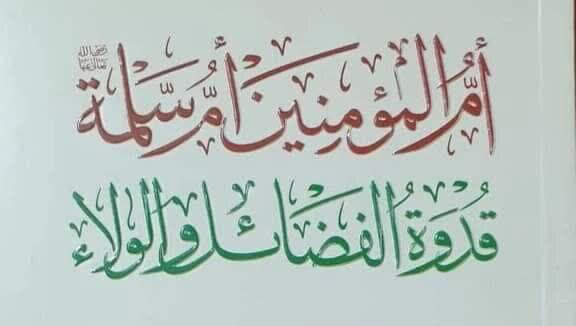 أمُّ المؤمِنين أمُّ سَلمة رضي الله تعالى عنها
قُدْوَةُ الفَضَائل والولاء